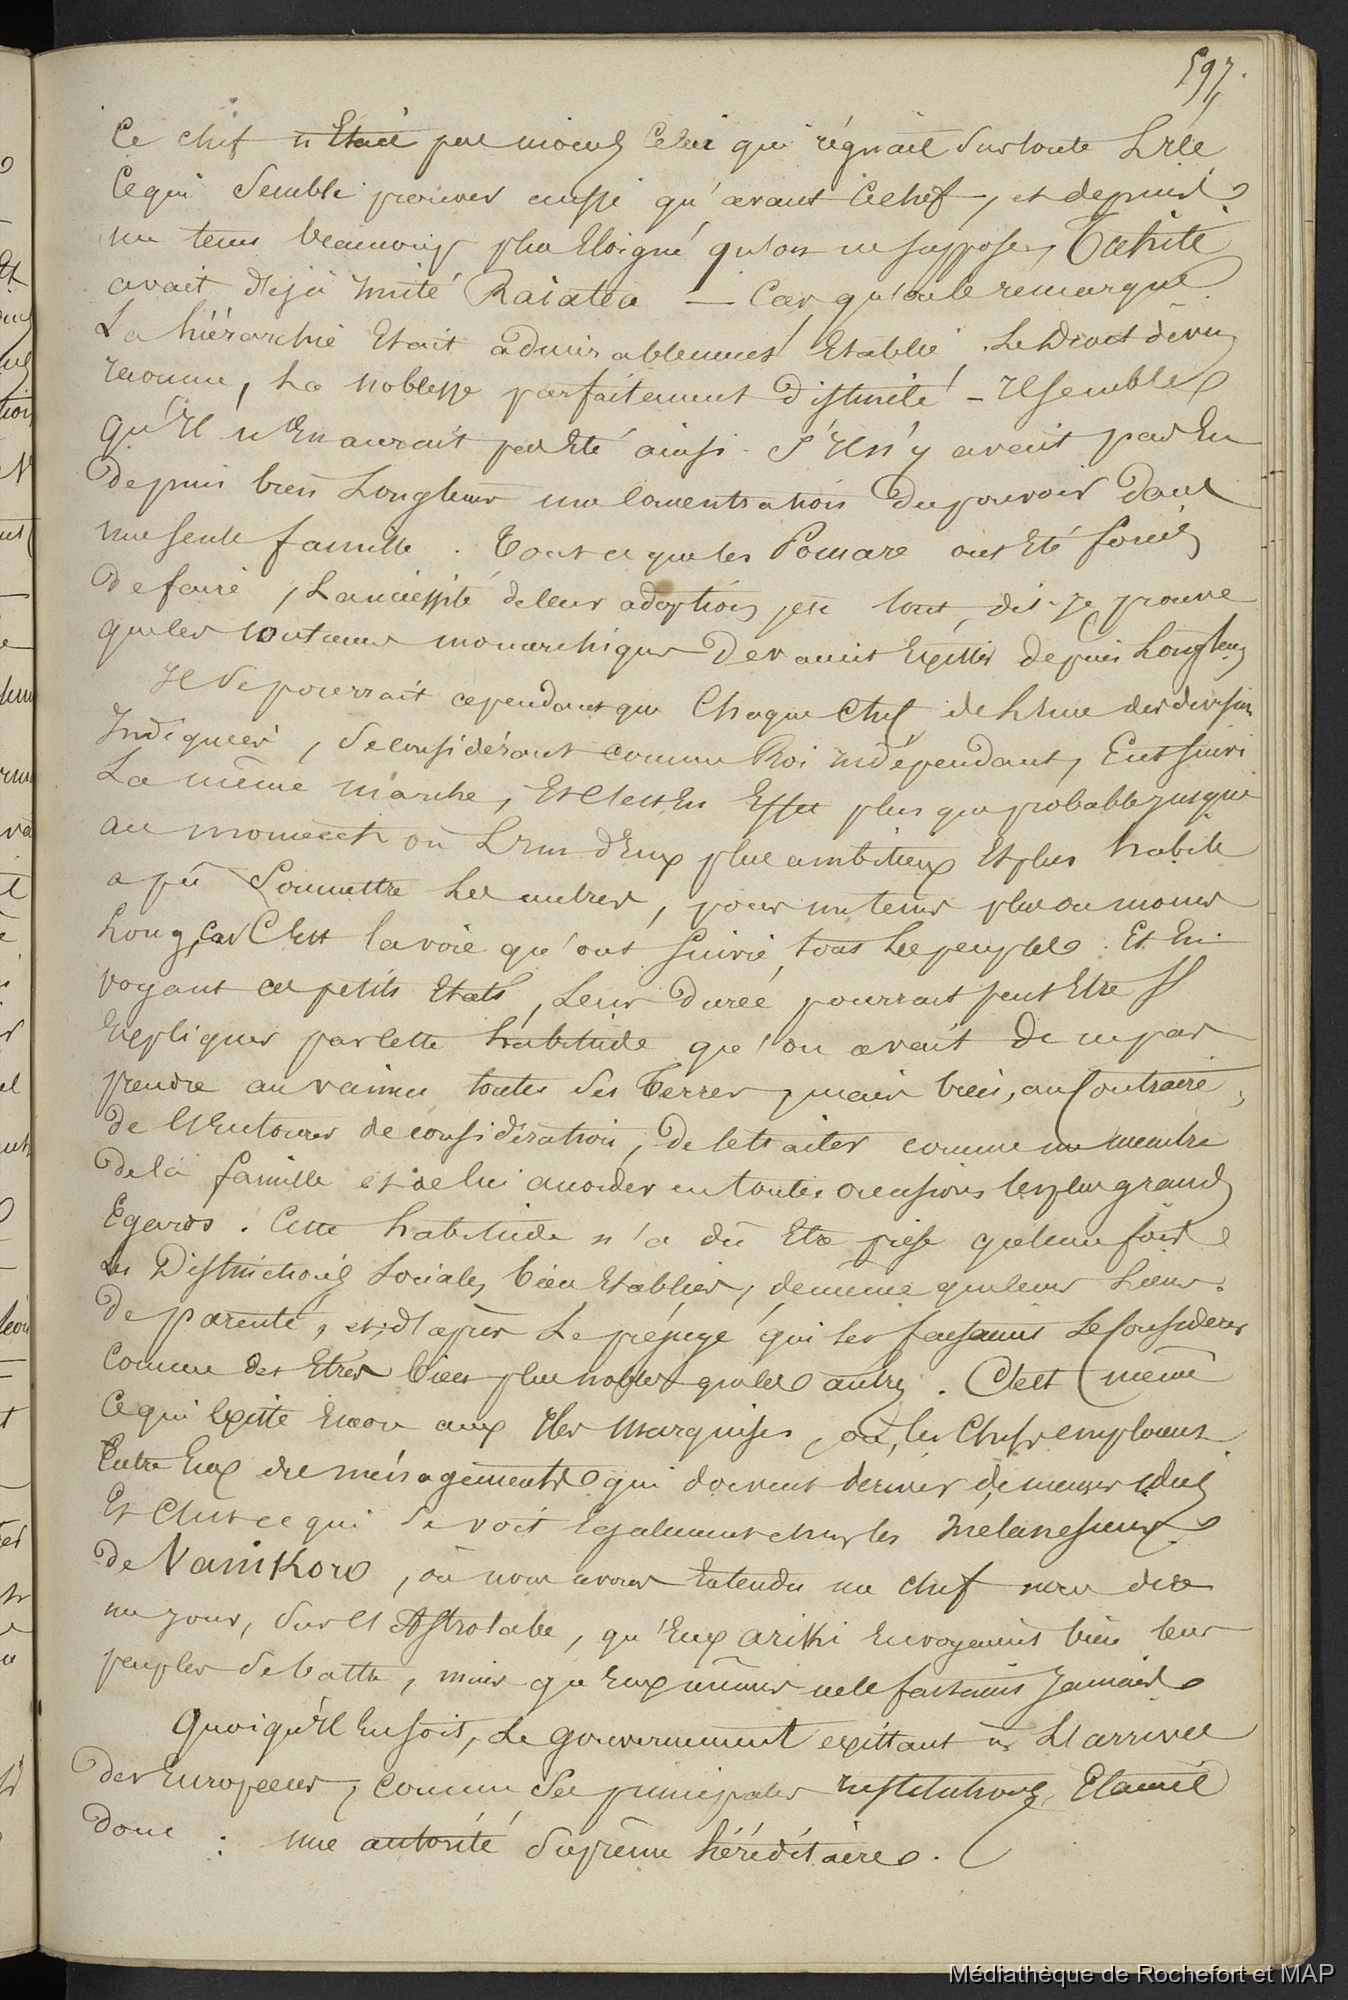 597.
Ce chef n'Etait pas moins Celui qui régnait sur toute L'île
Ce qui semble prouver aussi qu'avant Ce chef, et depuis
un tems beaucoup plus Eloigné qu'on ne suppose, Tahiti
avait déjà imité Raiatea — Car qu'on le remarque
La hiérarchie Etait admirablement Etablie. Le Droit divin
reconnu, La noblesse parfaitement distincte — Il semble
Qu'Il n'En aurait pas Eté ainsi S'Il n'y avait pas Eu
depuis bien Longtems une Concentration Du pouvoir Dans
une seule famille. Tout ce que les Pomare ont Eté forcés
De faire, La nécessité de leur adoption, etc tout, dis-je, prouve
que les coutumes monarchiques Devaient Exister depuis Longtems
Il se pourrait cependant que Chaque Chef de L'une des divisions
Indiquées, se considérant comme Roi indépendant, Eut suivi
La même marche, Et C'est En Effet plus que probable jusque
au moment où L'un d'Eux plus ambitieux Et plus habile
a pû Soumettre Les autres, pour un tems plus ou moins
Long, car C'Est la voie qu'ont suivie tous Les peuples. Et En
voyant ces petits Etats, Leur Durée pourrait peut Etre S'
Expliquer par Cette habitude qu'on avait De ne pas
prendre au vaincu toutes ses Terres, mais bien, au Contraire,
de L'Entourer de considération, De le traiter comme un membre
De la famille et de lui accorder en toutes occasions les plus grands
Egards. Cette habitude n'a dû Etre prise qu'une fois
Les Distinctions Sociales bien Etablies, de même que leurs Liens
De parenté, et d'après Le préjugé qui les faisaient Se Considérer
Comme des Etres bien plus nobles que les autres. C'est même
Ce qui Existe Encore aux Iles Marquises, où les Chefs emploient
Entre Eux des ménagements qui doivent dériver de mêmes idées
Et C'est ce qui se voit Egalement chez les Mélanésiens
De Vanikoro, où nous avons Entendu un chef nous dire
un jour, sur L'Astrolabe, qu'Eux Ariki Envoyaient bien leurs
peuples se battre, mais qu'Eux mêmes ne le faisaient Jamais
Quoiqu'Il En soit, Le gouvernement existant à L'arrivée
Des Européens, comme ses principales Institutions, Etaient
Donc : une autorité suprême héréditaire.
Médiathèque de Rochefort et MAP